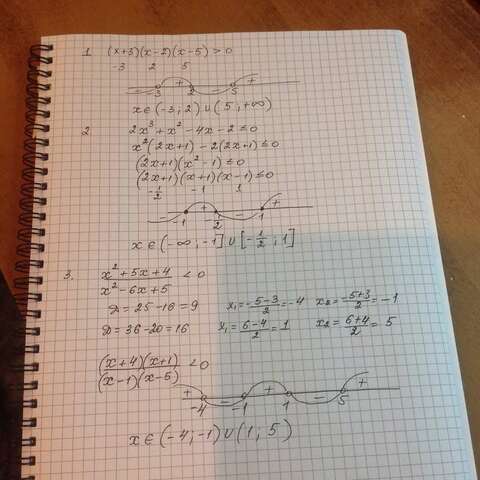 1 (x+3)(x-2)(x-5)>0
-3 2 5
- -3 + 2 - 5 +
x∈(-3;2)∪(5;+∞)
2 2x³+x²-4x-2≤0
x²(2x+1)-2(2x+1)≤0
(2x+1)(x²-1)≤0
(2x+1)(x+1)(x-1)≤0
-1/2 -1 1
- -1 + -1/2 - 1 +
x∈(-∞;-1]∪[-1/2;1]
3. (x²+5x+4)/(x²-6x+5) <0
D=25-16=9 x₁=(-5-3)/2=-4 x₂=(-5+3)/2=-1
D=36-20=16 x₁=(6-4)/2=1 x₂=(6+4)/2=5
((x+4)(x+1))/((x-1)(x-5)) <0
+ -4 - -1 + 1 - 5 +
x∈(-4;-1)∪(1;5)